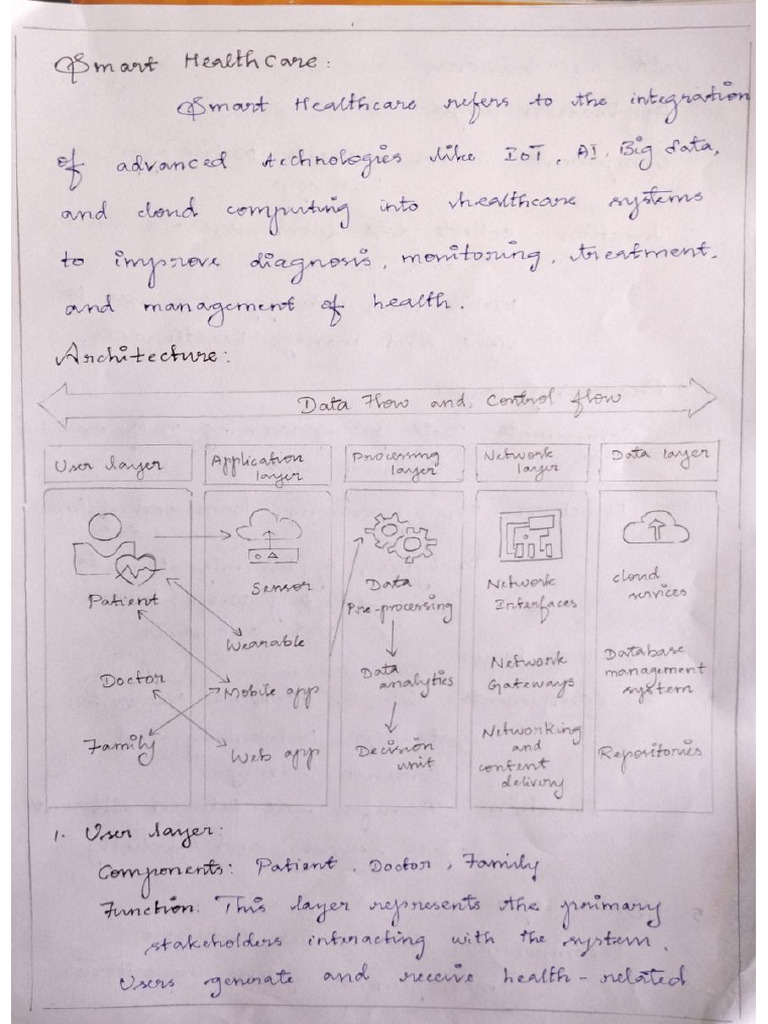 Smart Healthcare:
Smart Healthcare refers to the integration
of advanced technologies like IoT, AI, Big data,
and cloud computing into healthcare systems
to improve diagnosis, monitoring, treatment,
and management of health.
Architecture:
Data Flow and Control flow
User layer
Application
layer
Processing
layer
Network
layer
Data layer
Patient
Doctor
Family
Sensor
Wearable
Mobile app
Web app
Data
Pre-processing
Data
analytics
Decision
unit
Network
Interfaces
Network
Gateways
Networking
and
content
delivery
cloud
services
Database
management
system
Repositories
1. User layer:
Components: Patient, Doctor, Family
Function: This layer represents the primary
stakeholders interacting with the system.
Users generate and receive health-related